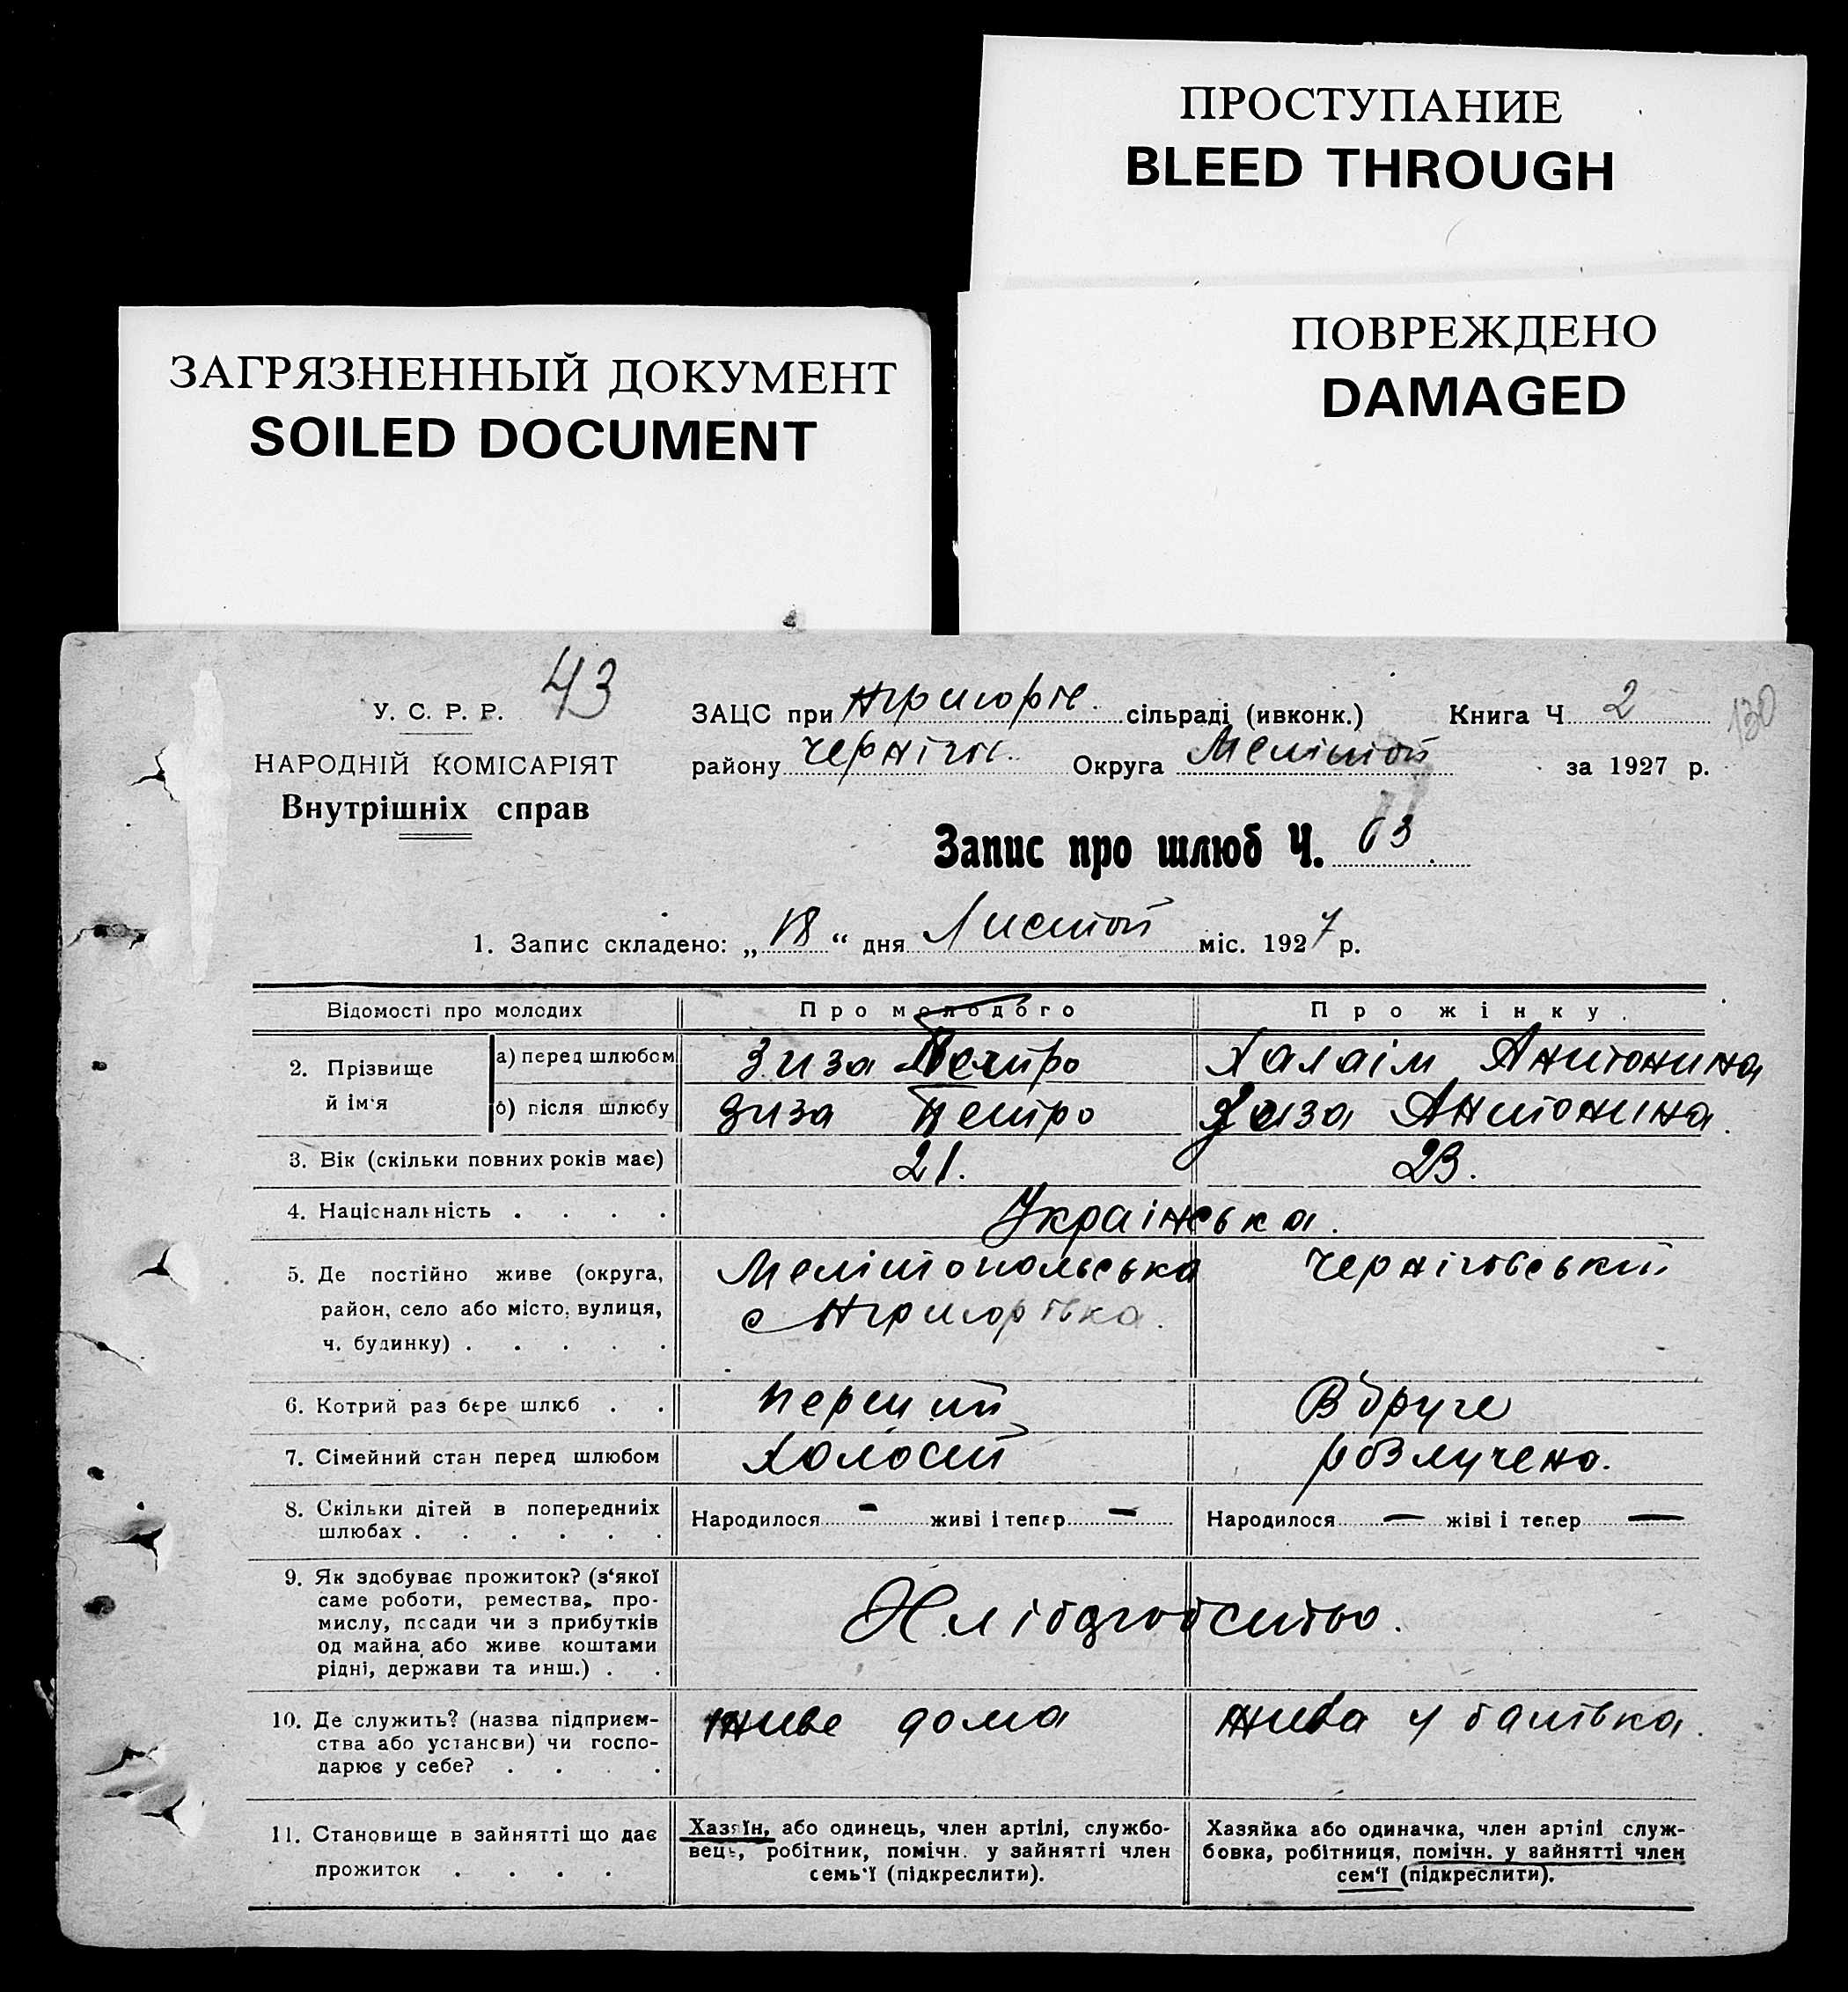 ПРОСТУПАНИЕ
BLEED THROUGH
ПОВРЕЖДЕНО
DAMAGED
ЗАГРЯЗНЕННЫЙ ДОКУМЕНТ
SOILED DOCUMENT
43
У. С. Р. Р.
НАРОДНІЙ КОМІСАРІЯТ
Внутрішніх справ
ЗАЦС при Нгригорів. сільраді (ивконк.) Книга Ч 2 130
району Чернігів. Округа Мелітоп за 1927 р.
Запис про шлюб Ч. 63
1. Запис складено: „18“ дня Листоп міс. 1927 р.
Відомості про молодих Про молодого Про жінку.
2. Прізвище й ім‘я
а) перед шлюбом Зиза Петро Халаім Антонина
б) після шлюбу Зиза Петро Зиза Антонина.
3. Вік (скільки повних років має) 21. 23.
4. Національність . . . . Украінська.
5. Де постійно живе (округа, Мелітопольська Чернігівський
район, село або місто, вулиця, с Нгригорівка.
ч. будинку) . . . . .
6. Котрий раз бере шлюб . . перший Вдруге
7. Сімейний стан перед шлюбом Холостй розлучена.
8. Скільки дітей в попередниіх шлюбах . . . . . . Народилося - живі і тепер - Народилося - жіві і тепер -
9. Як здобуває прожиток? (з‘якої
саме роботи, ремества, про-
мислу, посади чи з прибутків
од майна або живе коштами
рідні, держави та инш.) . . Хлібороbство.
10. Де служить? (назва підприєм- живе дома жива у батівка.
ства або устансви) чи госпо-
дарює у себе? . . . .
11. Становище в зайнятті що дає
прожиток . . . .
Хазяїн, або одинець, член артілі, службо-
вець, робітник, помічн. у зайнятті член
семь‘ї (підкреслити).
Хазяйка або одиначка, член артілі служ-
бовка, робітниця, помічн. у зайнятті член
сем‘ї (підкреслити).